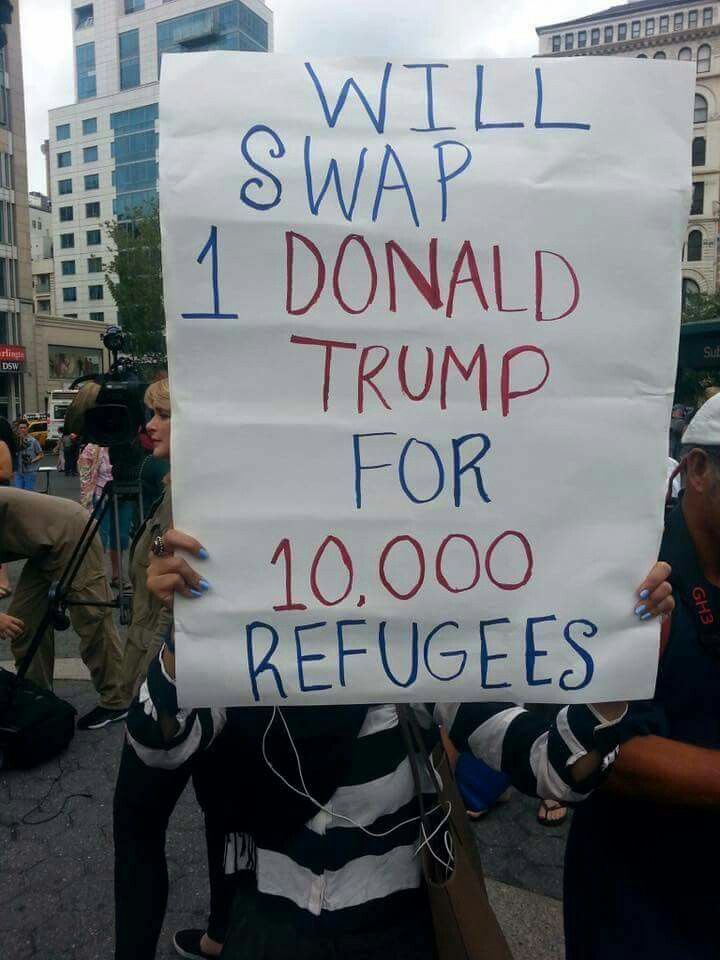 WILL
SWAP
1 DONALD
TRUMP
FOR
10,000
REFUGEES
DSW
GH3